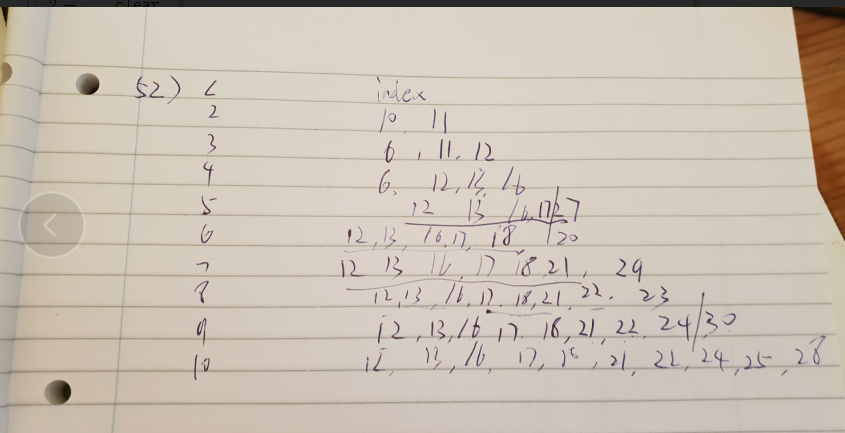 clear
52) L index
2 10 11
3 6, 11, 12
4 6, 12, 13, 16
5 12 13 16, 17/27
6 12, 13, 16, 17, 18 /20
7 12 13 16, 17 18, 21, 29
8 12, 13, 16, 17, 18, 21, 22, 23
9 12, 13, 16 17 18, 21, 22, 24/30
10 12, 13, 16, 17, 18, 21, 22, 24, 25, 28